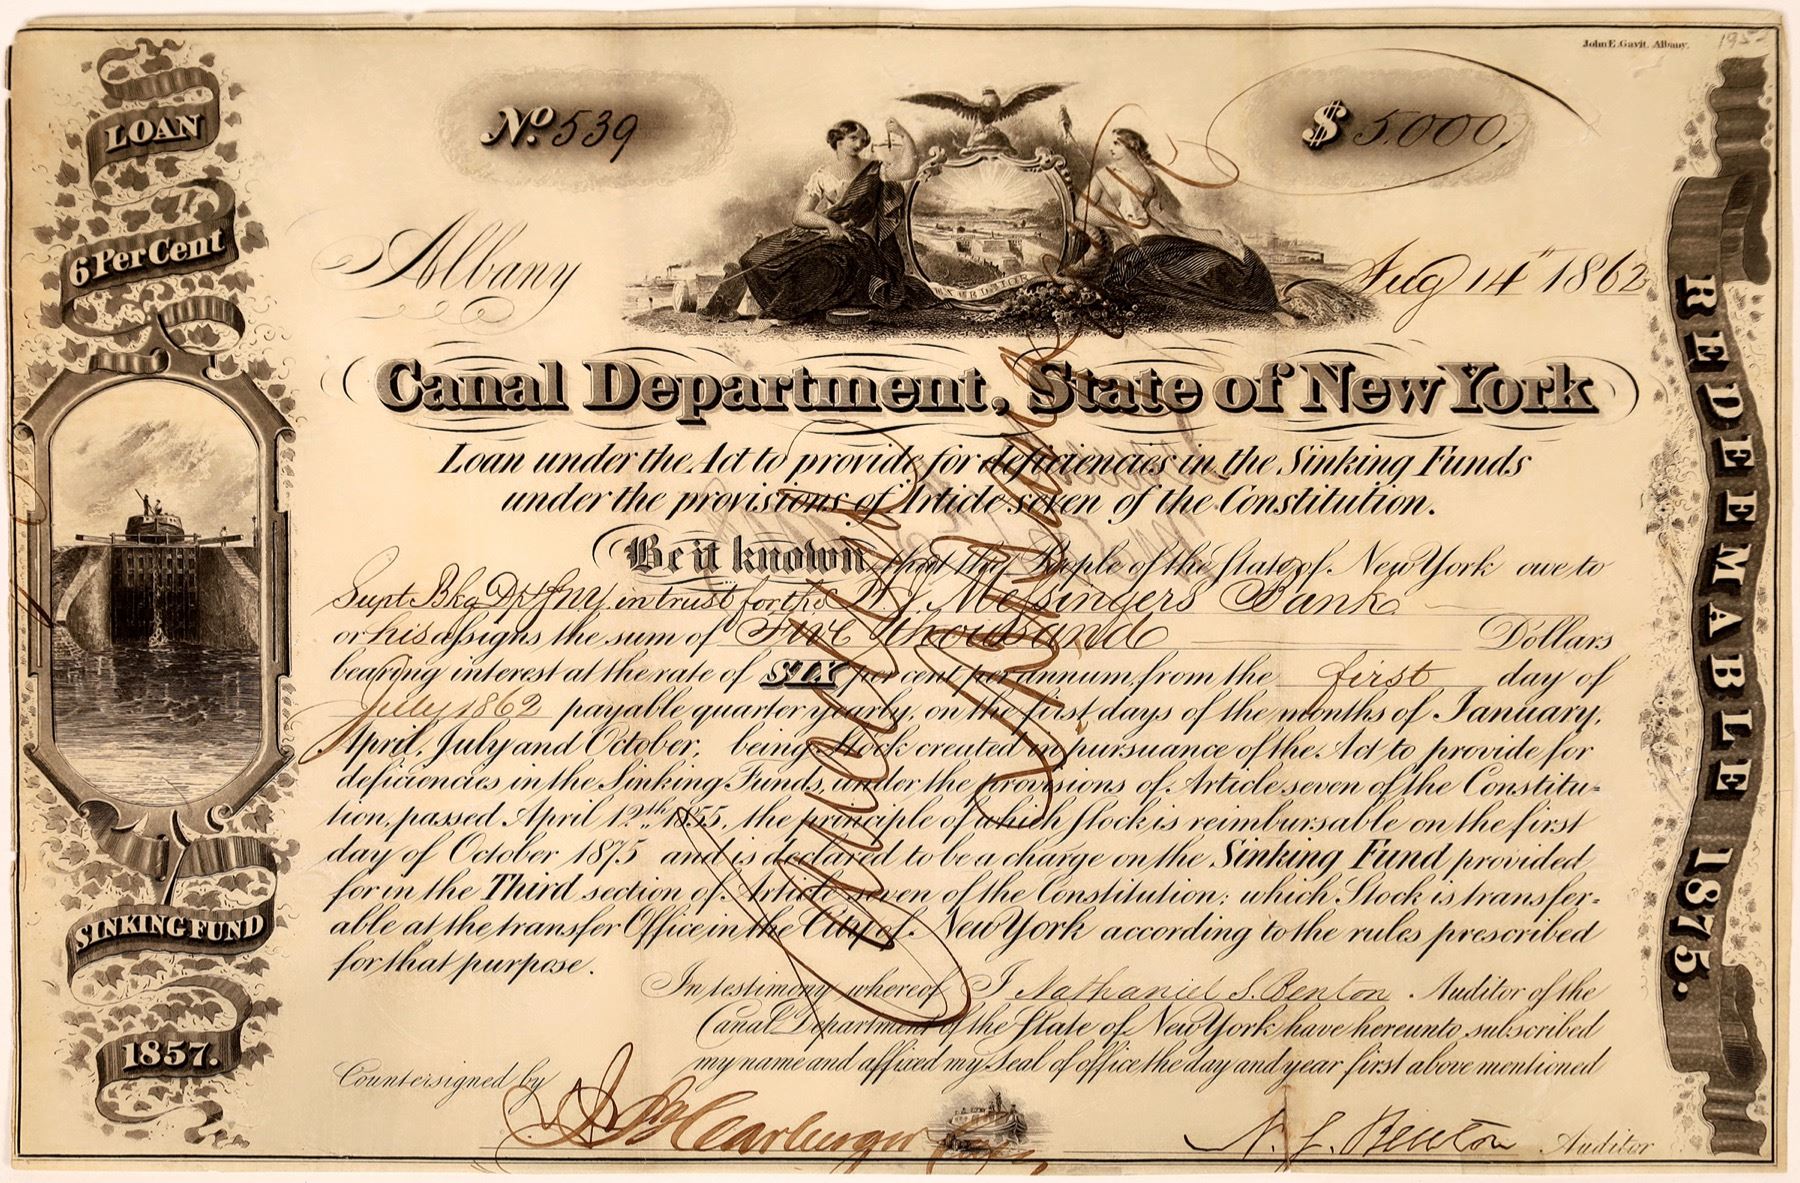 John E. Gavit, Albany.
No. 539
$ 5.000
Albany
Aug 14th 1862
LOAN
6 Per Cent
SINKING FUND
1857.
Canal Department, State of New York
Loan under the Act to provide for deficiencies in the Sinking Funds
under the provisions of Article seven of the Constitution.
Be it known, that the People of the State of New York owe to
Supt Bkg Dpt in trust for the Messingers Bank
or his assigns the sum of Five Thousand Dollars
bearing interest at the rate of SIX per cent per annum, from the first day of
July 1862 payable quarter yearly, on the first days of the months of January,
April, July and October, being Stock created in pursuance of the Act to provide for
deficiencies in the Sinking Funds, under the provisions of Article seven of the Constitu-
tion, passed April 12th 1855, the principle of which Stock is reimbursable on the first
day of October 1875 and is declared to be a charge on the Sinking Fund provided
for in the Third section of Article seven of the Constitution; which Stock is transfer-
able at the transfer Office in the City of New York according to the rules prescribed
for that purpose.
In testimony whereof I Nathaniel S. Benton Auditor of the
Canal Department of the State of New York have hereunto subscribed
my name and affixed my Seal of office the day and year first above mentioned
Countersigned by
N. S. Benton Auditor
REDEEMABLE 1875.